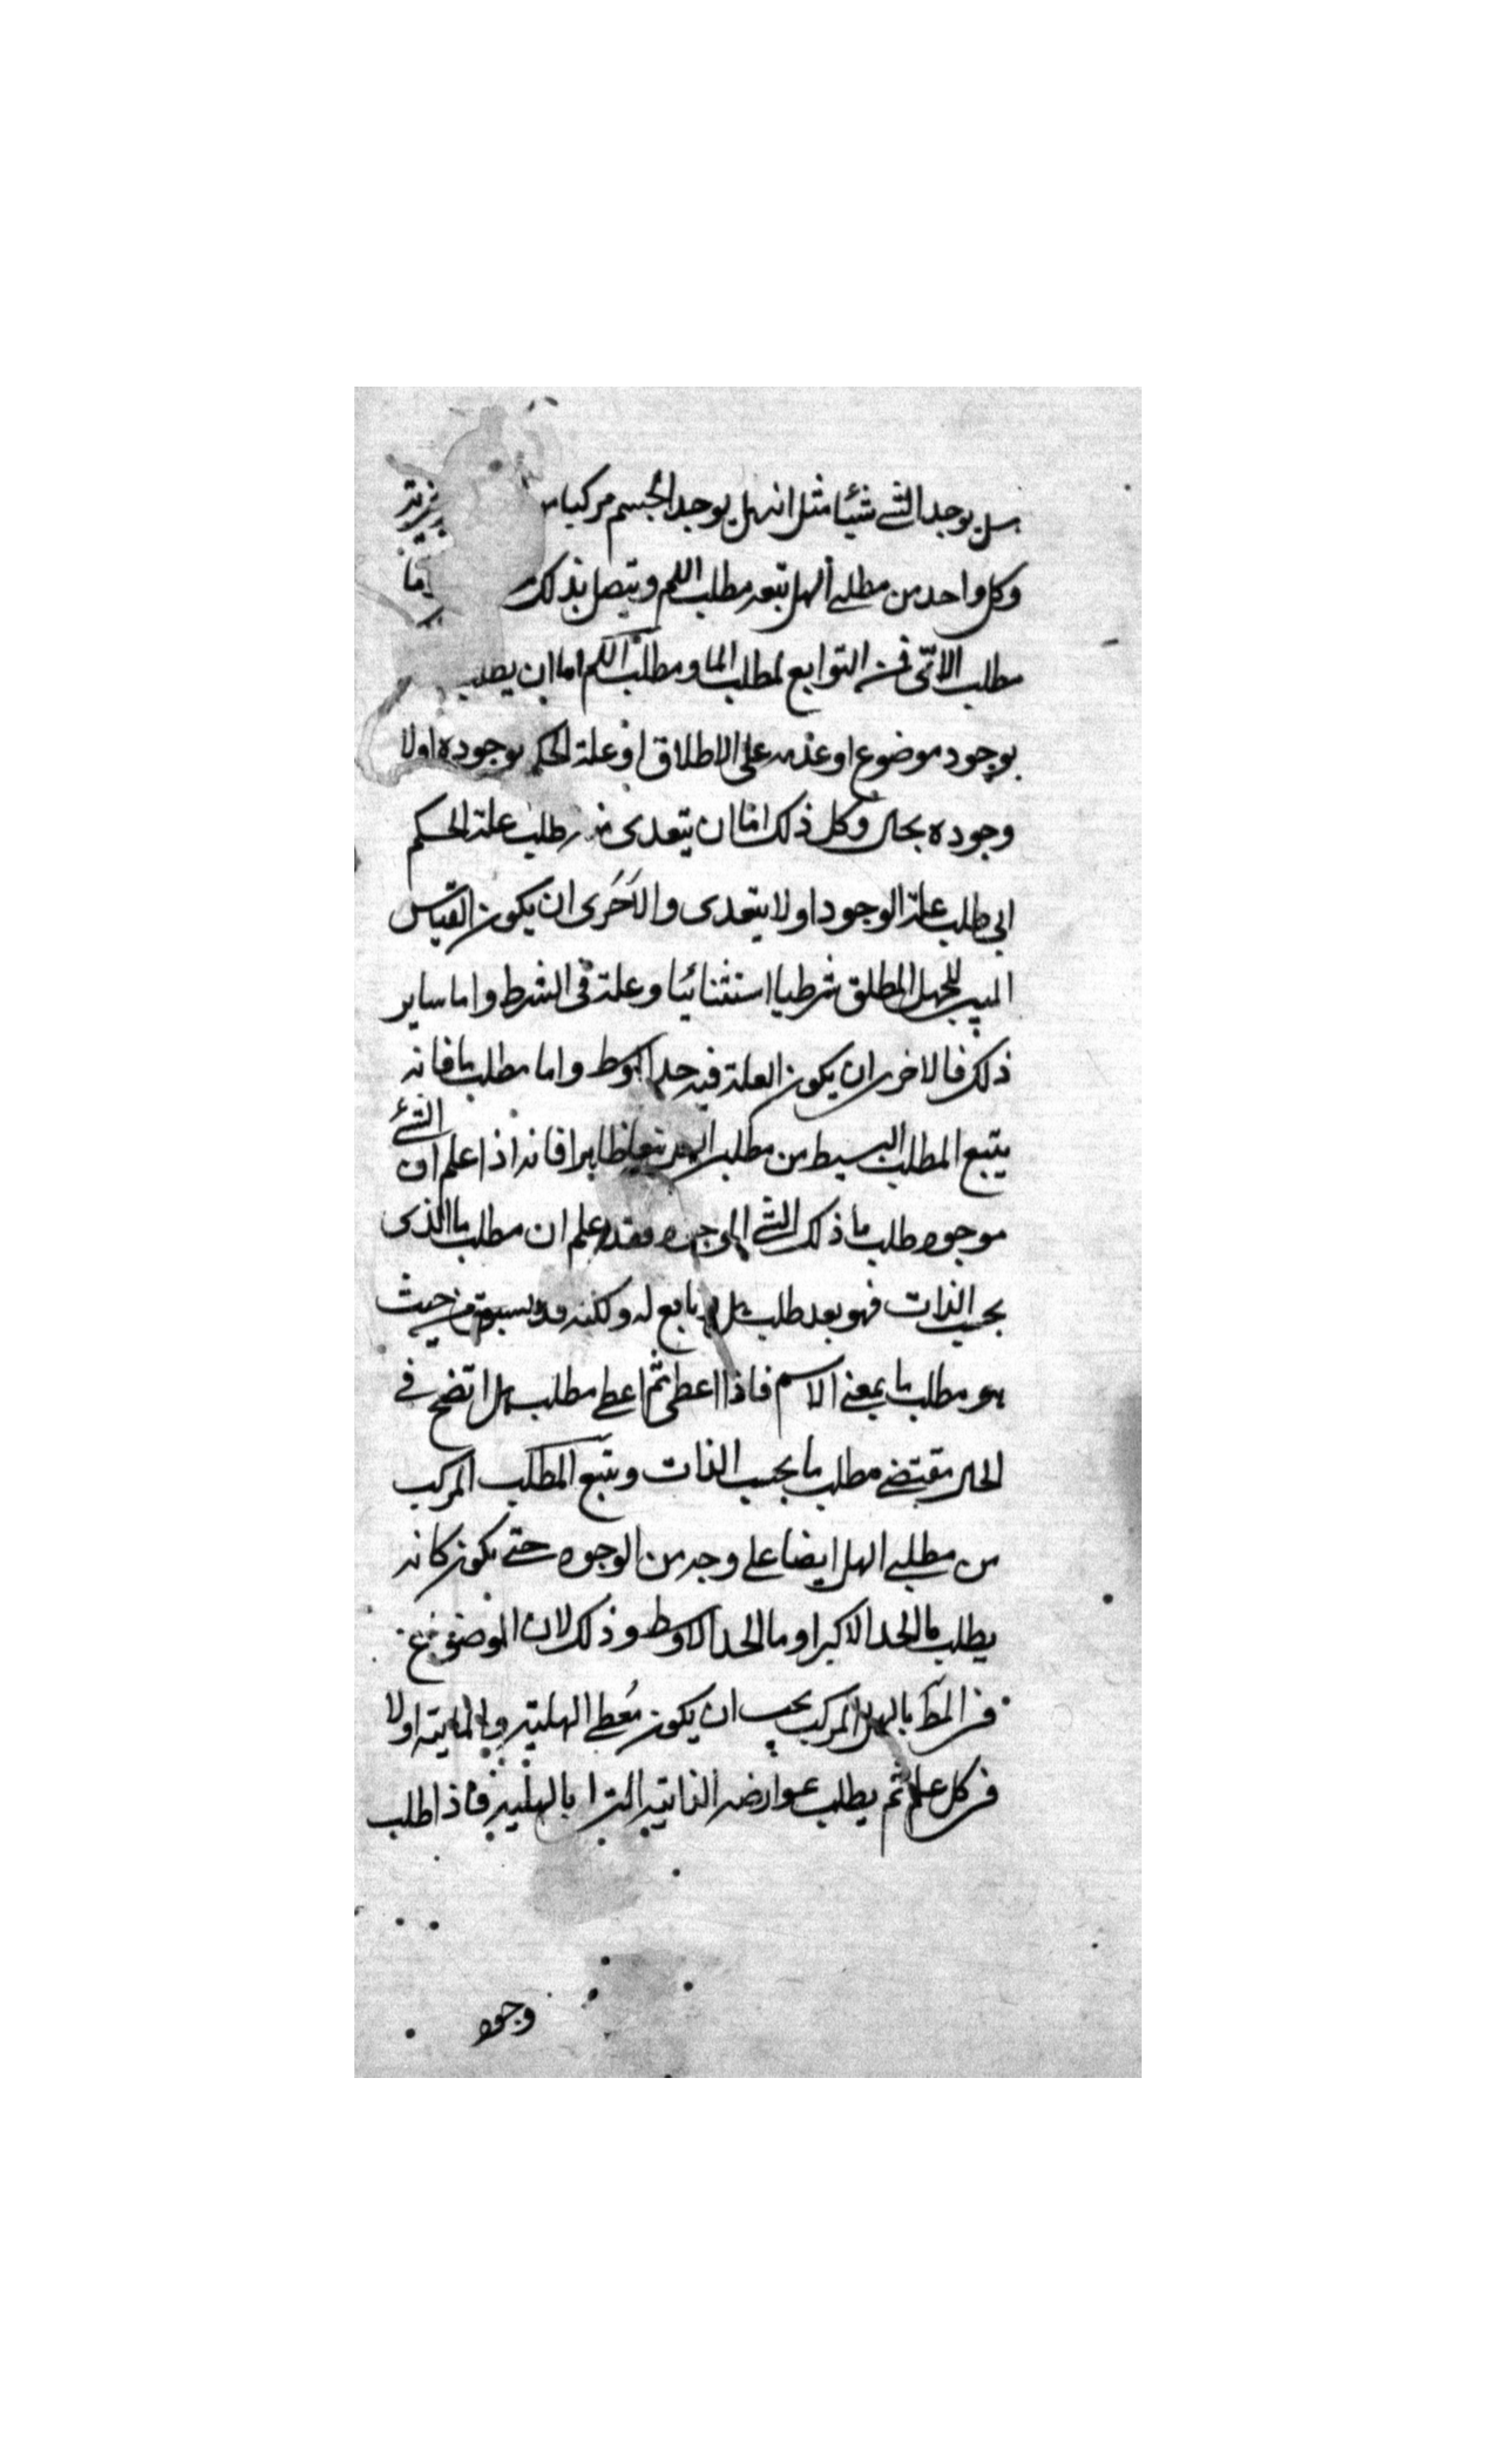 هل يوجد الشئ شيئا مثل انه هل يوجد الجسم مركبا
وكل واحد من مطلبي الهل يتبعه مطلب اللم ويتصل بذلك اما
مطلب الاىّ فمن التوابع لمطلب الما ومطلب اللم اما ان يطلب
بوجود موضوع او عدمه على الاطلاق او علة الحكم بوجوده اولا
وجوده بحال وكل ذلك اما ان يتعدى فيه طلب علة الحكم
الى طلب علة الوجود اولا يتعدى والاَحَرى ان يكون القياس
المبين للهل المطلق شرطيا استثنائيا وعلة فى الشرط واما ساير
ذلك فالاحرى ان يكون العلة فيه حد اوسط واما مطلب ما فانه
يتبع المطلب البسيط من مطلبى الهل تبعا ظاهرا فانه اذا علم ان الشئ
موجود طلب ما ذلك الشئ الموجود وقد علم ان مطلب ما الذى
بحسب الذات فهو بعد طلب هل تابع له ولكنه قد يسبقه من حيث
هو مطلب ما بمعنى الاسم فاذا اعطى ثم اعطى مطلب هل اتضح في
الحال مقتضى مطلب ما بحسب الذات ويتبع المطلب المركب
من مطلبي الهل ايضا على وجه من الوجوه حتى يكون كانه
يطلب ما الحد الاكبر او ما الحد الاوسط وذلك لان الموضوع
فى المط بالهل المركب يجب ان يكون مُعطى الهلية والمايية اولا
فى كل علم ثم يطلب عوارضه الذاتية التى بالهلية فاذا طلب
وجود